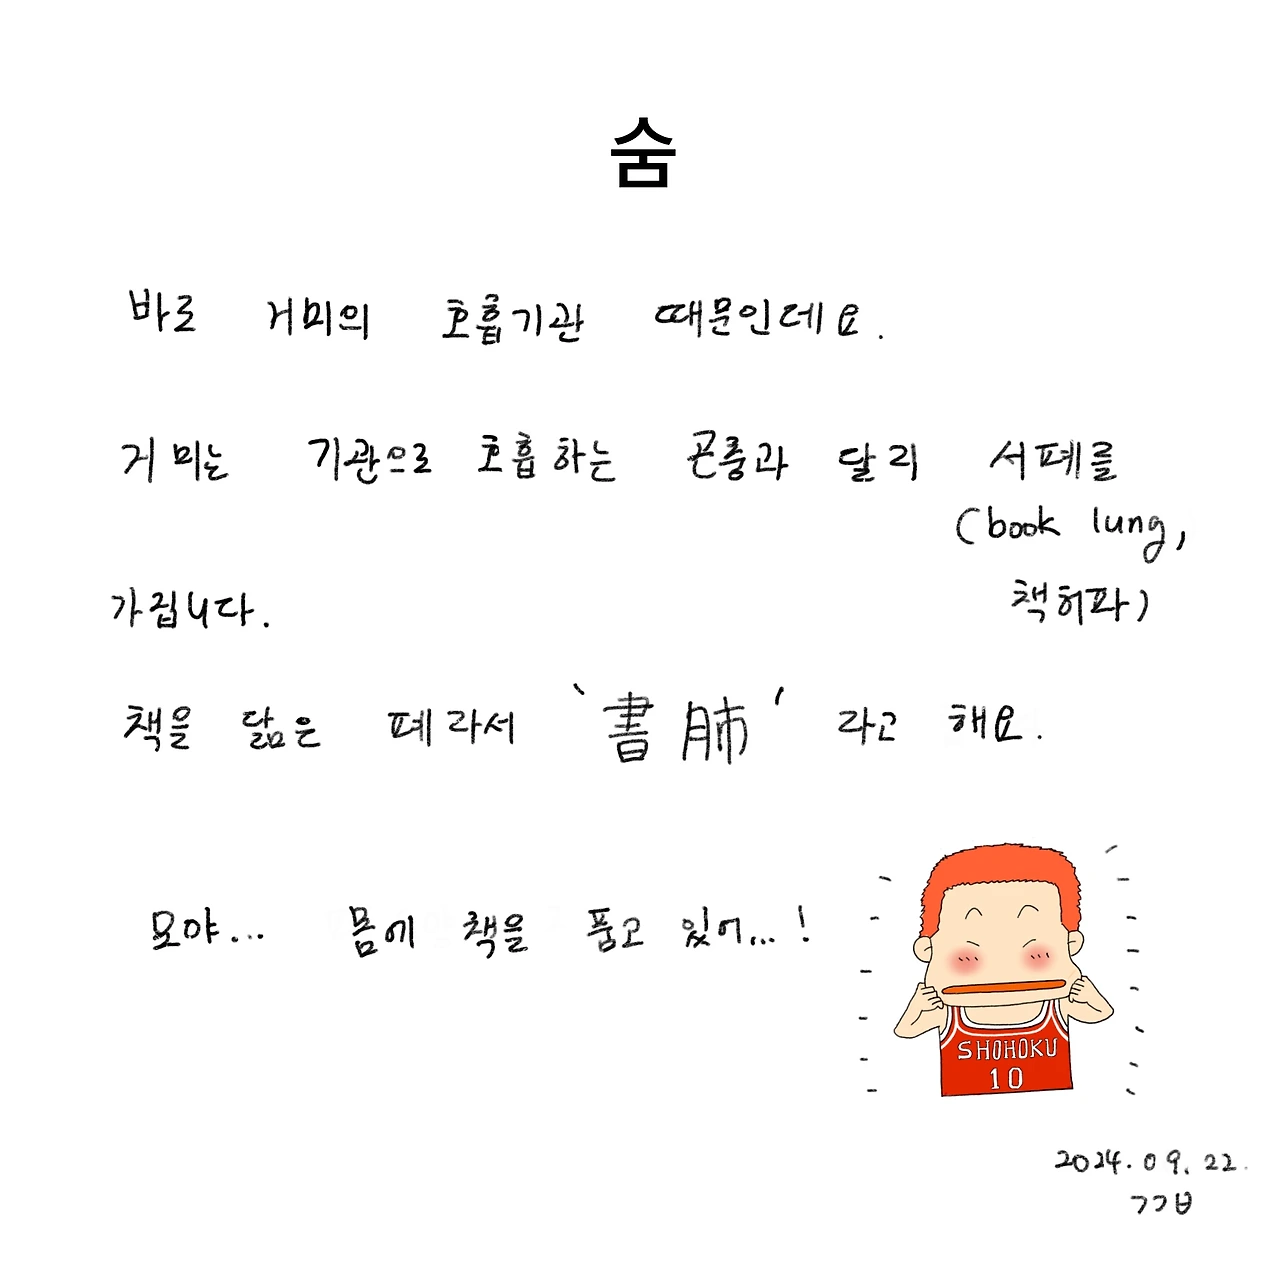 숨
바로 거미의 호흡기관 때문인데요.
거미는 기관으로 호흡하는 곤충과 달리 서폐를
(book lung,
가집니다. 책허파)
책을 닮은 폐라서 '書肺' 라고 해요.
모야... 몸에 책을 품고 있어...!
SHOHOKU
10
2024.09.22.
ㄱㄱㅂ